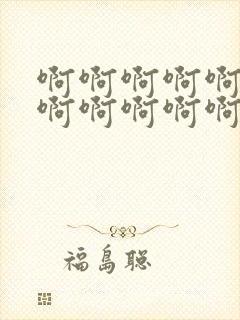 啊啊啊啊啊
啊啊啊啊啊
福島聡